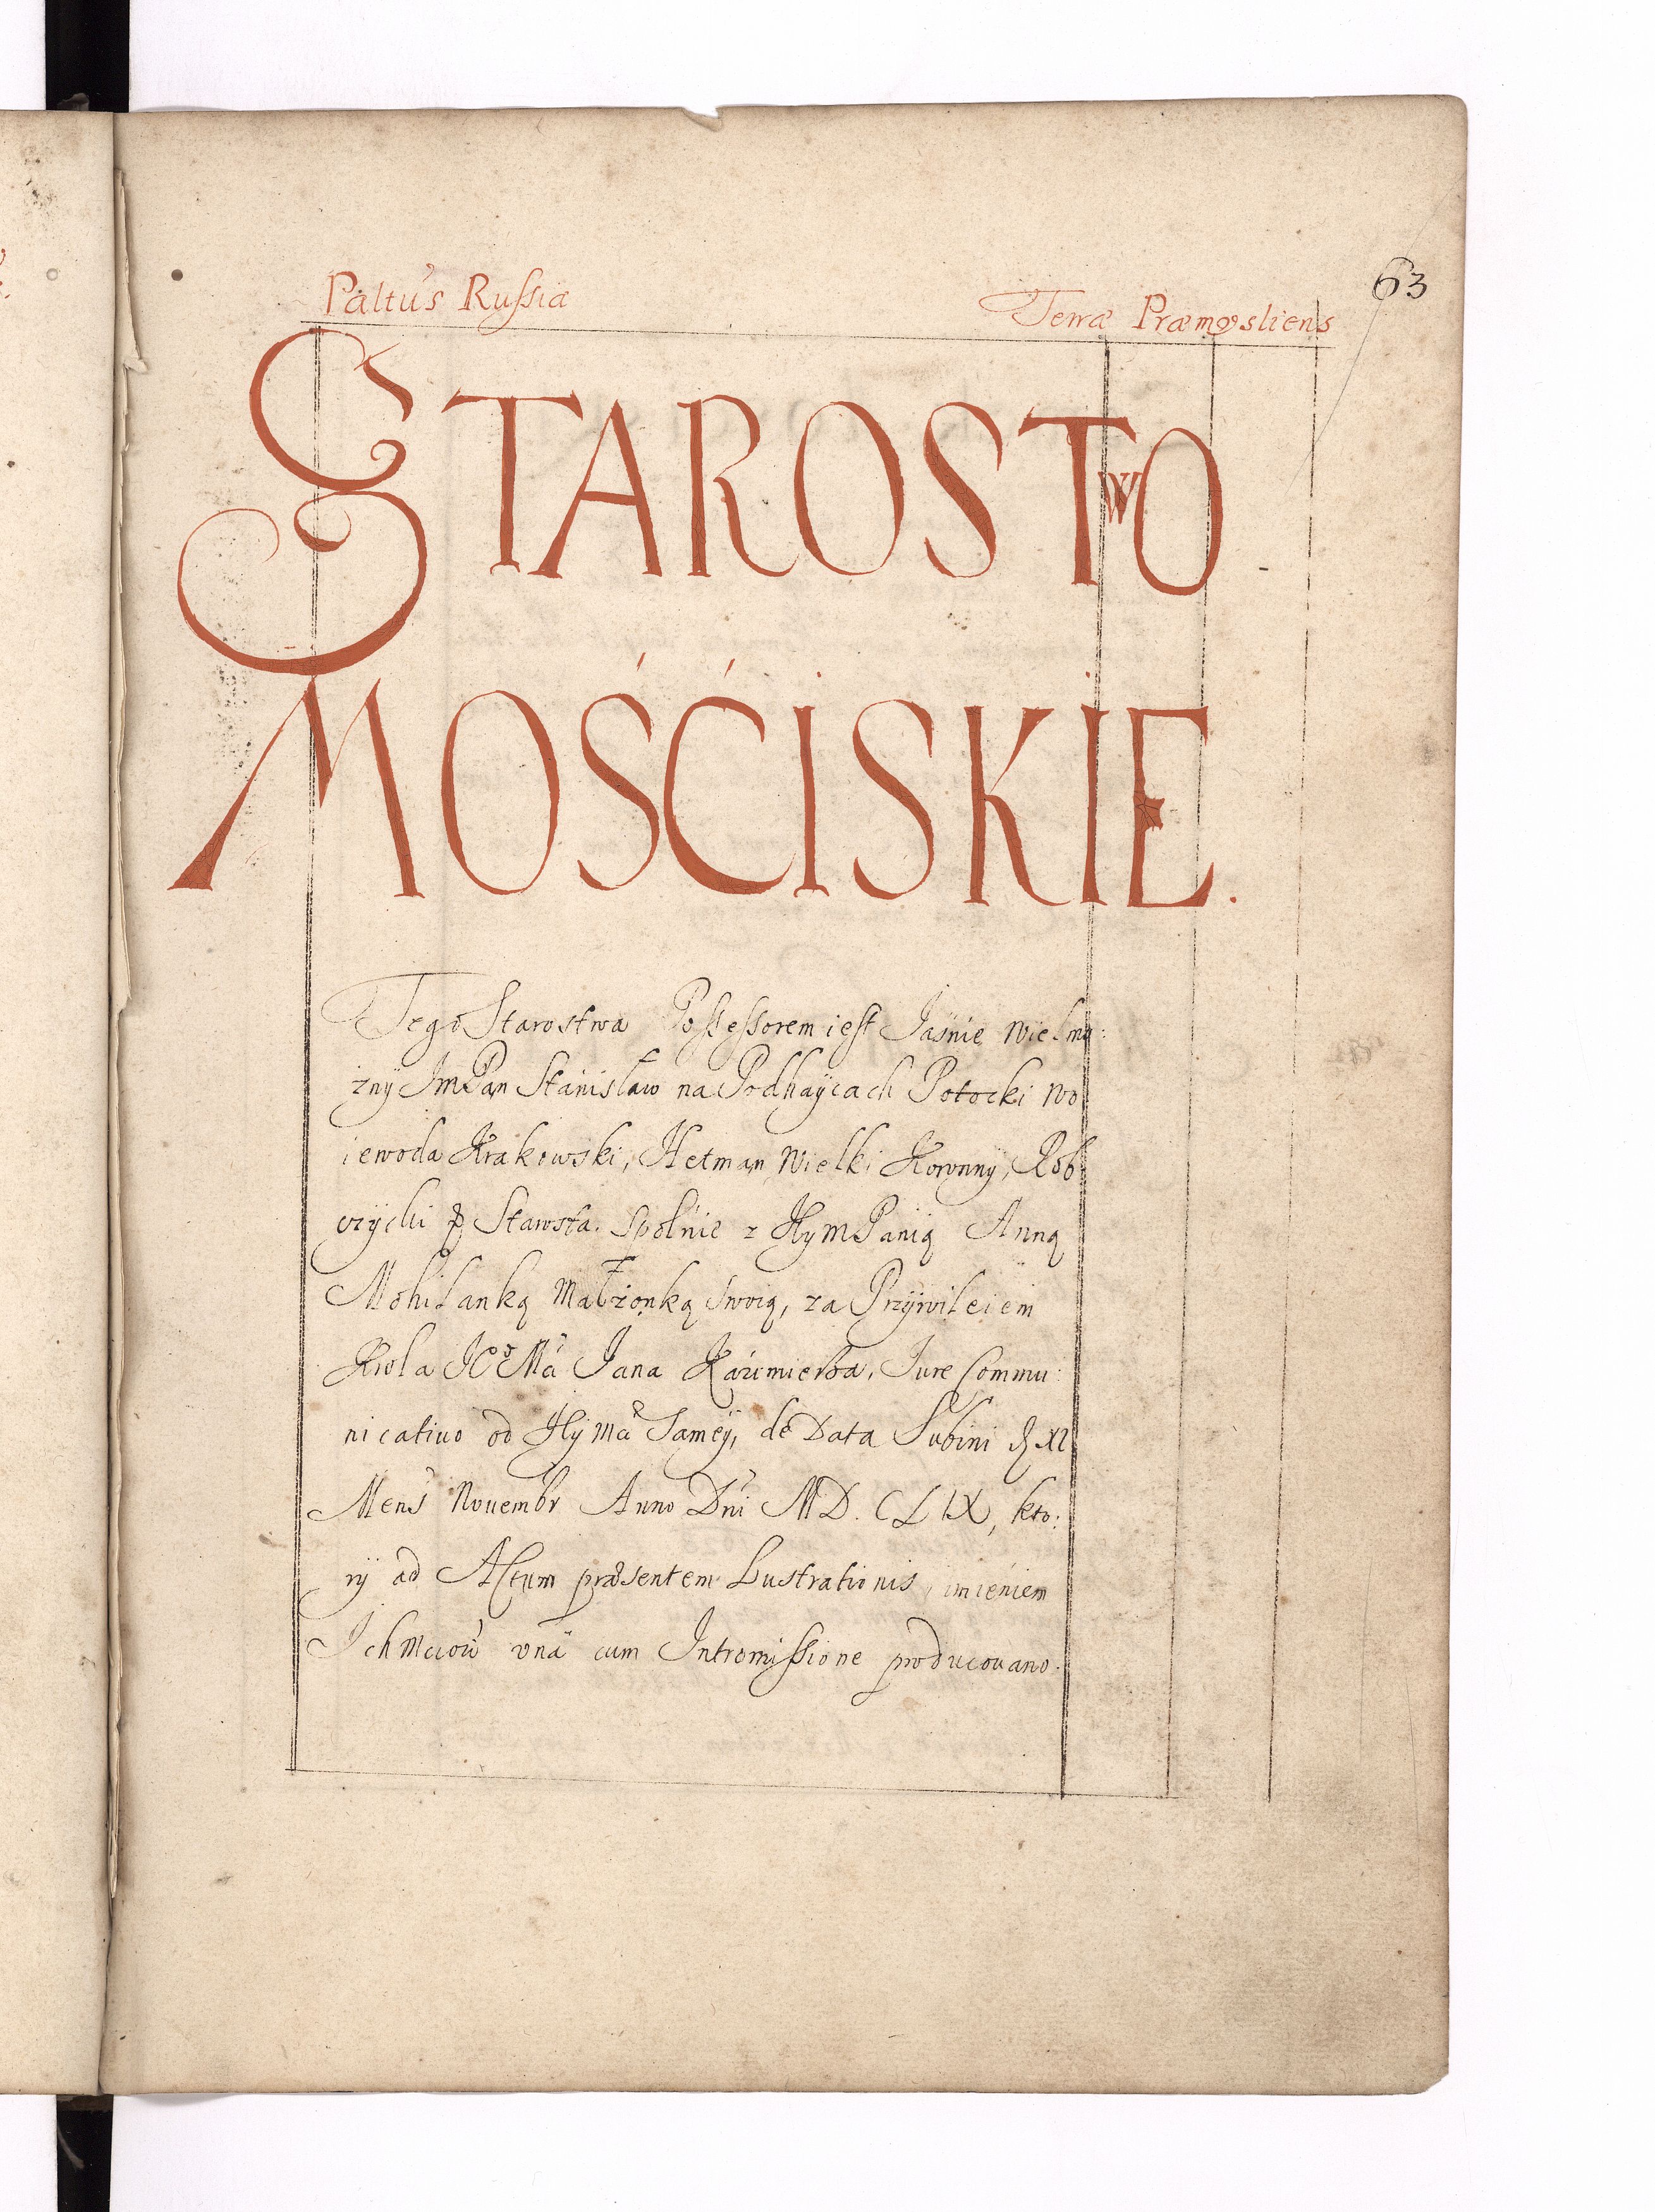 Paltus Russia
Terræ Præmysliens
63
STAROSTwO
MOŚĆISKIE.
Tego Starostwa Possessorem iest Jaśnie Wielmo:
zny JmPan Stanisław na Podhaycach Potocki Wo
iewoda Krakowski, Hetman Wielki Koronny, Rob
czycki Starosta. Społnie z JeymPanią Anną
Mohilanką Małzonką Swoią, za Przywileiem
Krola Je⁰Mci Jana Kazimierza, Jure Commu:
nicativo od Jeymci Samey, de Data Lubini XI
Mens Nouembr Anno Dni MD. CLIX, kto:
ry ad Actum præsentem Lustrationis, imieniem
Ichmciow vna cum Intromissione producouano.